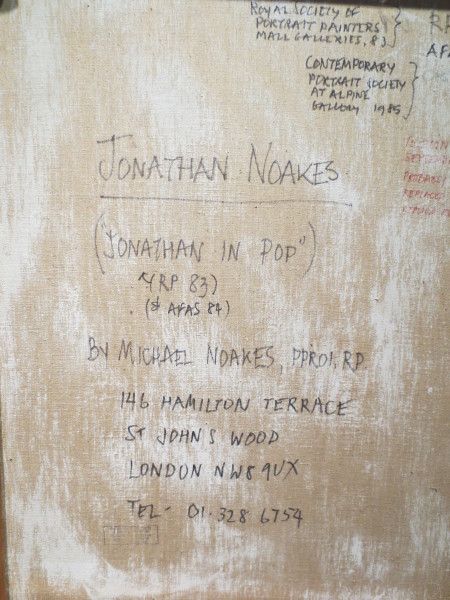 ROYAL SOCIETY OF
PORTRAIT PAINTERS
MALL GALLERIES, 83
CONTEMPORARY
PORTRAIT SOCIETY
AT ALPINE
GALLERY 1985
JONATHAN NOAKES
("JONATHAN IN POP")
(RP 83)
(& AFAS 84)
BY MICHAEL NOAKES, PPROI, RP.
146 HAMILTON TERRACE
ST JOHN'S WOOD
LONDON NW8 9UX
TEL- 01·328 6754